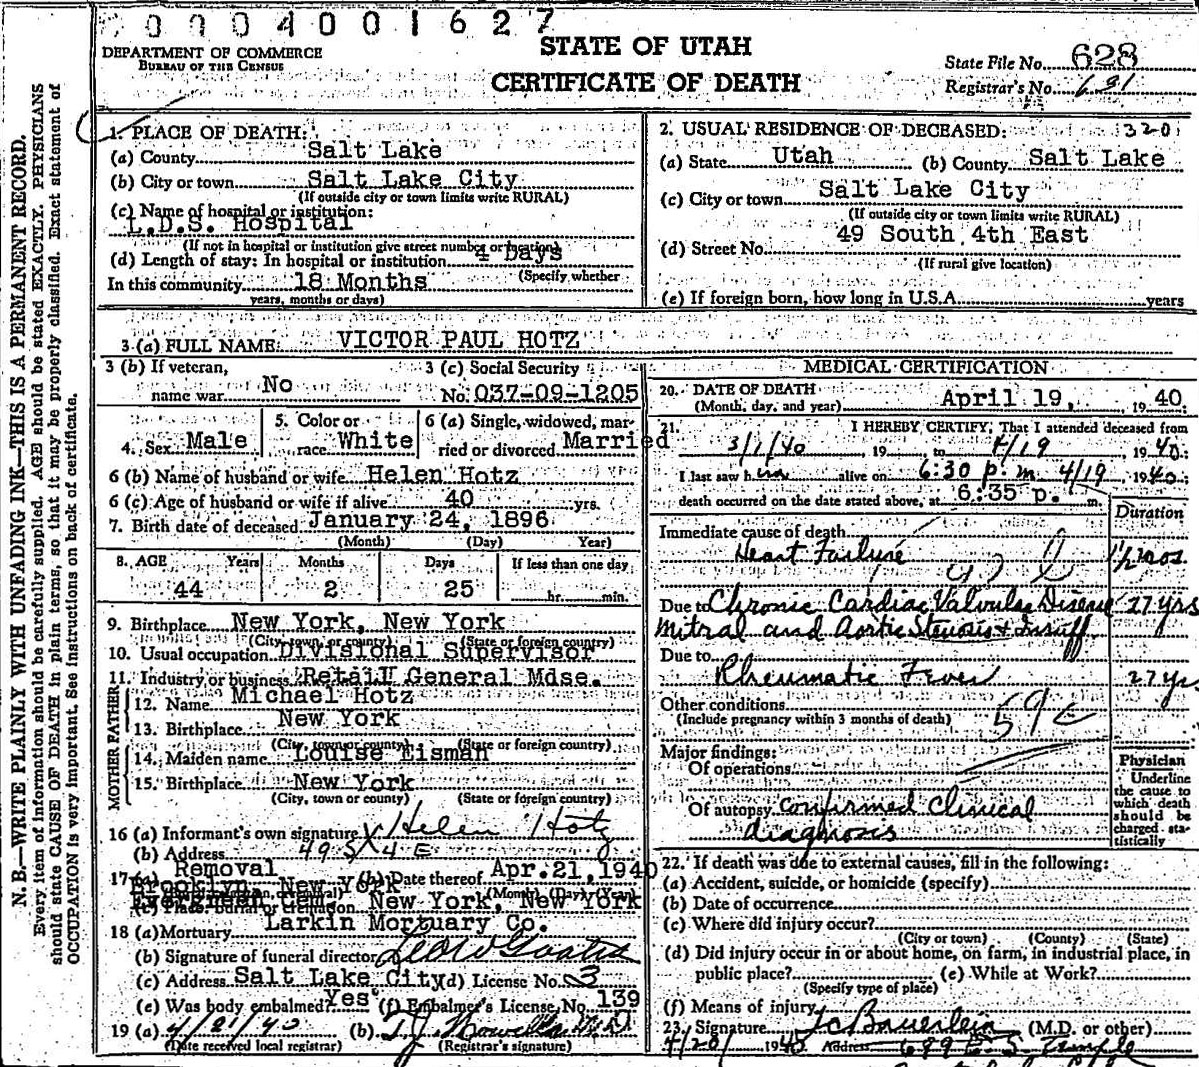 0004001627
DEPARTMENT OF COMMERCE
BUREAU OF THE CENSUS
STATE OF UTAH
CERTIFICATE OF DEATH
State File No. 628
Registrar's No. 631
N. B.—WRITE PLAINLY WITH UNFADING INK—THIS IS A PERMANENT RECORD.
Every item of information should be carefully supplied. AGE should be stated EXACTLY. PHYSICIANS
should state CAUSE OF DEATH in plain terms, so that it may be properly classified. Exact statement of
OCCUPATION is very important. See instructions on back of certificate.
1. PLACE OF DEATH:
(a) County Salt Lake
(b) City or town Salt Lake City
(If outside city or town limits write RURAL)
(c) Name of hospital or institution:
L.D.S. Hospital
(If not in hospital or institution give street number or location)
(d) Length of stay: In hospital or institution 4 Days
(Specify whether
In this community 18 Months
years, months or days)
2. USUAL RESIDENCE OF DECEASED: 320
(a) State Utah (b) County Salt Lake
(c) City or town Salt Lake City
(If outside city or town limits write RURAL)
(d) Street No. 49 South 4th East
(If rural give location)
(e) If foreign born, how long in U.S.A. years
3 (a) FULL NAME: VICTOR PAUL HOTZ
3 (b) If veteran,
name war No
3 (c) Social Security
No. 037-09-1205
4. Sex Male
5. Color or
race White
6 (a) Single, widowed, mar-
ried or divorced Married
6 (b) Name of husband or wife Helen Hotz
6 (c) Age of husband or wife if alive 40 yrs.
7. Birth date of deceased January 24, 1896
(Month) (Day) Year)
8. AGE Years Months Days If less than one day
44 2 25 hr. min.
9. Birthplace New York, New York
(City, town, or county) (State or foreign country)
10. Usual occupation Divisional Supervisor
11. Industry or business Retail General Mdse.
FATHER
12. Name Michael Hotz
13. Birthplace New York
(City, town or county) (State or foreign country)
MOTHER
14. Maiden name Louise Eisman
15. Birthplace New York
(City, town or county) (State or foreign country)
16 (a) Informant's own signature X Helen Hotz
(b) Address 49 S 4 E
17 (a) Removal (b) Date thereof Apr. 21, 1940
Brooklyn, New York
(Month) (Day) (Year)
(c) Place: burial or cremation Evergreen Cem. New York, New York
18 (a) Mortuary Larkin Mortuary Co.
(b) Signature of funeral director
(c) Address Salt Lake City (d) License No. 3
(e) Was body embalmed? Yes (f) Embalmer's License No. 139
19 (a) 4/21/40 (b) T.J.
(Date received local registrar) (Registrar's signature)
MEDICAL CERTIFICATION
20. DATE OF DEATH
(Month, day, and year) April 19, 19 40
21. I HEREBY CERTIFY, That I attended deceased from
3/1/40, 19 to 4/19, 19 40.
I last saw h im alive on 6:30 p.m. 4/19 19 40;
death occurred on the date stated above, at 6:35 p. m.
Duration
Immediate cause of death
Heart Failure 1 1/2 mos.
Due to Chronic Cardiac Valvular Disease 27 yrs
Mitral and Aortic Stenosis + Insuff
Due to
Rheumatic Fever 27 yrs
Other conditions
(Include pregnancy within 3 months of death)
Major findings:
Of operations
Of autopsy confirmed clinical
diagnosis
Physician
Underline
the cause to
which death
should be
charged sta-
tistically
22. If death was due to external causes, fill in the following:
(a) Accident, suicide, or homicide (specify)
(b) Date of occurrence
(c) Where did injury occur?
(City or town) (County) (State)
(d) Did injury occur in or about home, on farm, in industrial place, in
public place? (e) While at Work?
(Specify type of place)
(f) Means of injury
23. Signature Bauerlein (M.D. or other)
4/20/ 19 40 Address 699 E. S. Temple